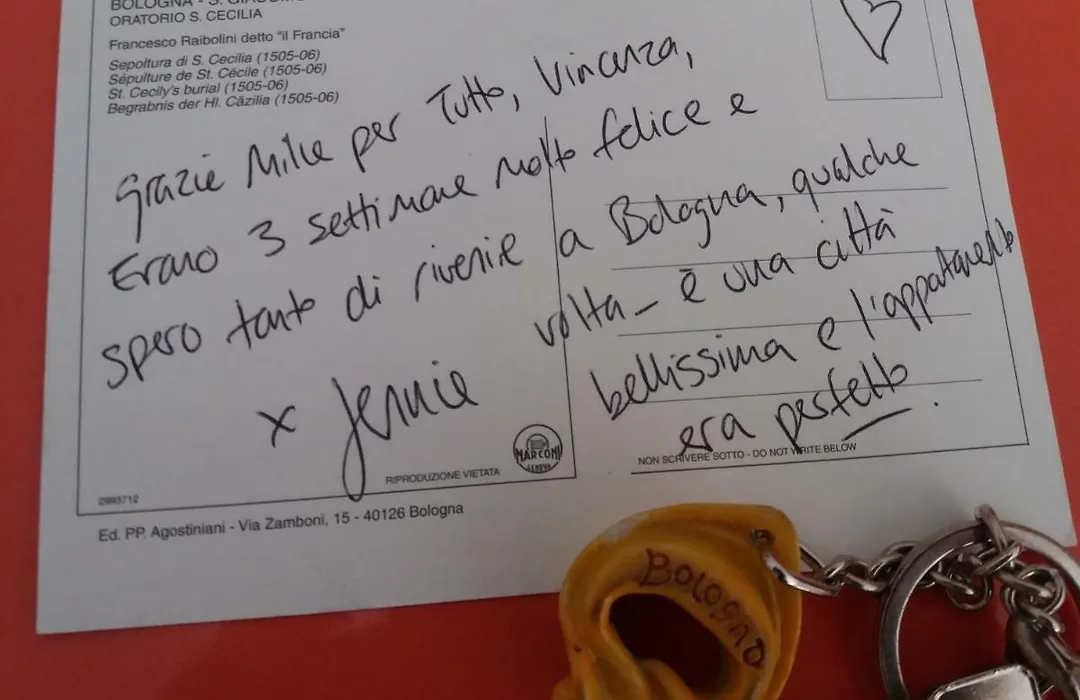 BOLOGNA - S. GIACOMO
ORATORIO S. CECILIA
Francesco Raibolini detto "il Francia"
Sepoltura di S. Cecilia (1505-06)
Sépulture de St. Cécile (1505-06)
St. Cecily's burial (1505-06)
Begrabnis der Hl. Cäzilia (1505-06)
Grazie Mille per Tutto, Vincenza,
Erano 3 settimane molto felice e
spero tanto di rivenire a Bologna, qualche
volta_ è una città
bellissima e l'appartamento
era perfetto.
x Jennie
RIPRODUZIONE VIETATA
MARCONI
GENOVA
NON SCRIVERE SOTTO - DO NOT WRITE BELOW
2993712
Ed. PP. Agostiniani - Via Zamboni, 15 - 40126 Bologna
BOLOGNA